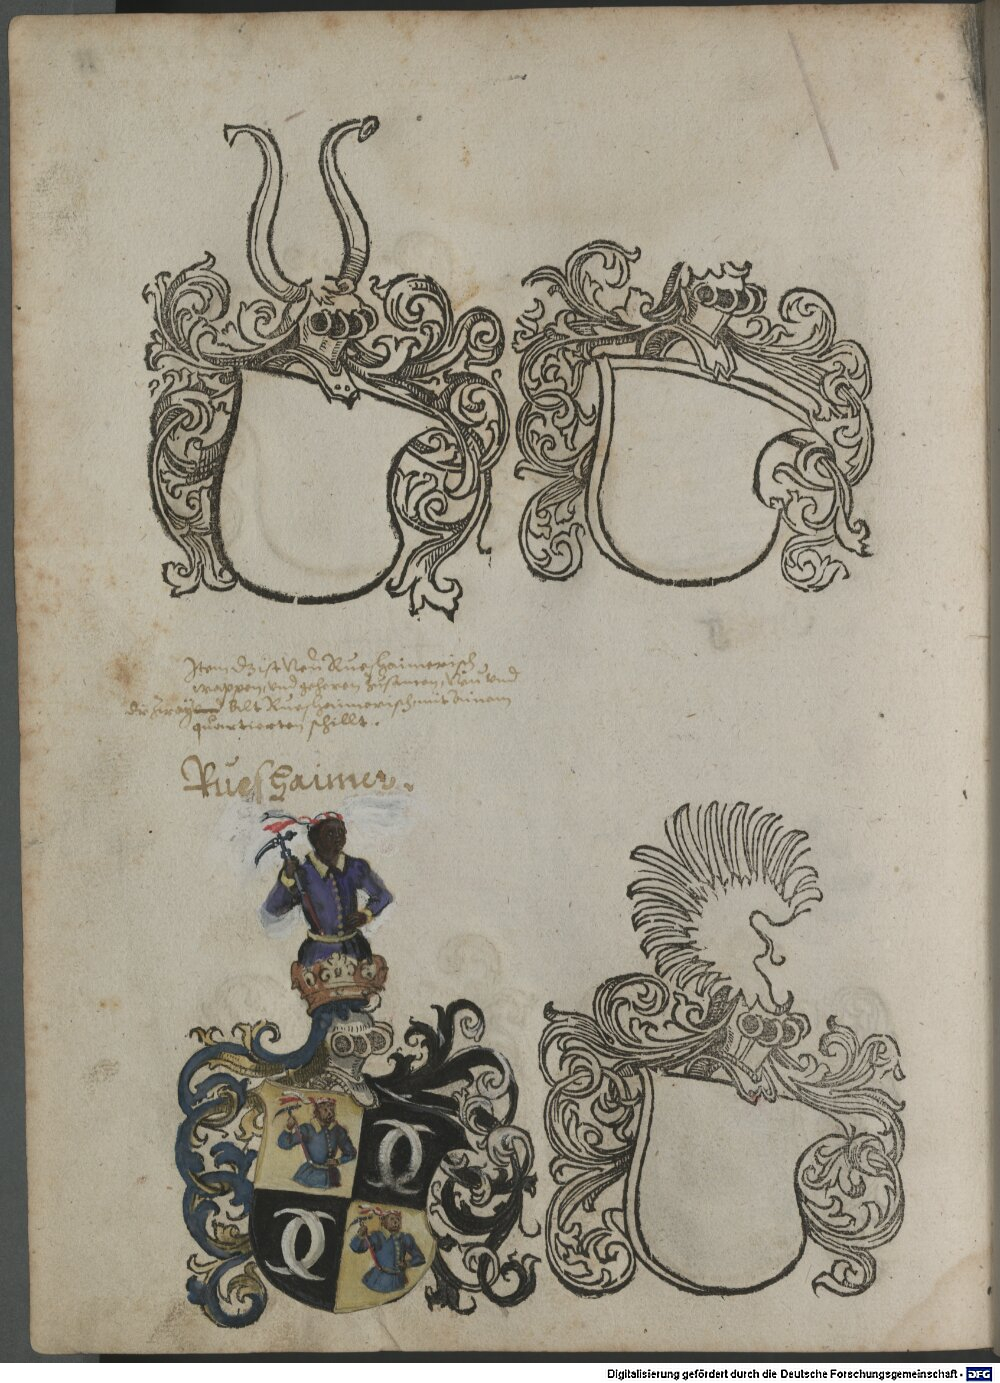 Item dz ist Neu Rueshaimerisch
wappen, und gehoren zusamen, Neu und
die zway Alt Rueshaimerisch, mit ainem
quartierten schillt.
Rueshaimer.
Digitalisierung gefördert durch die Deutsche Forschungsgemeinschaft - DFG